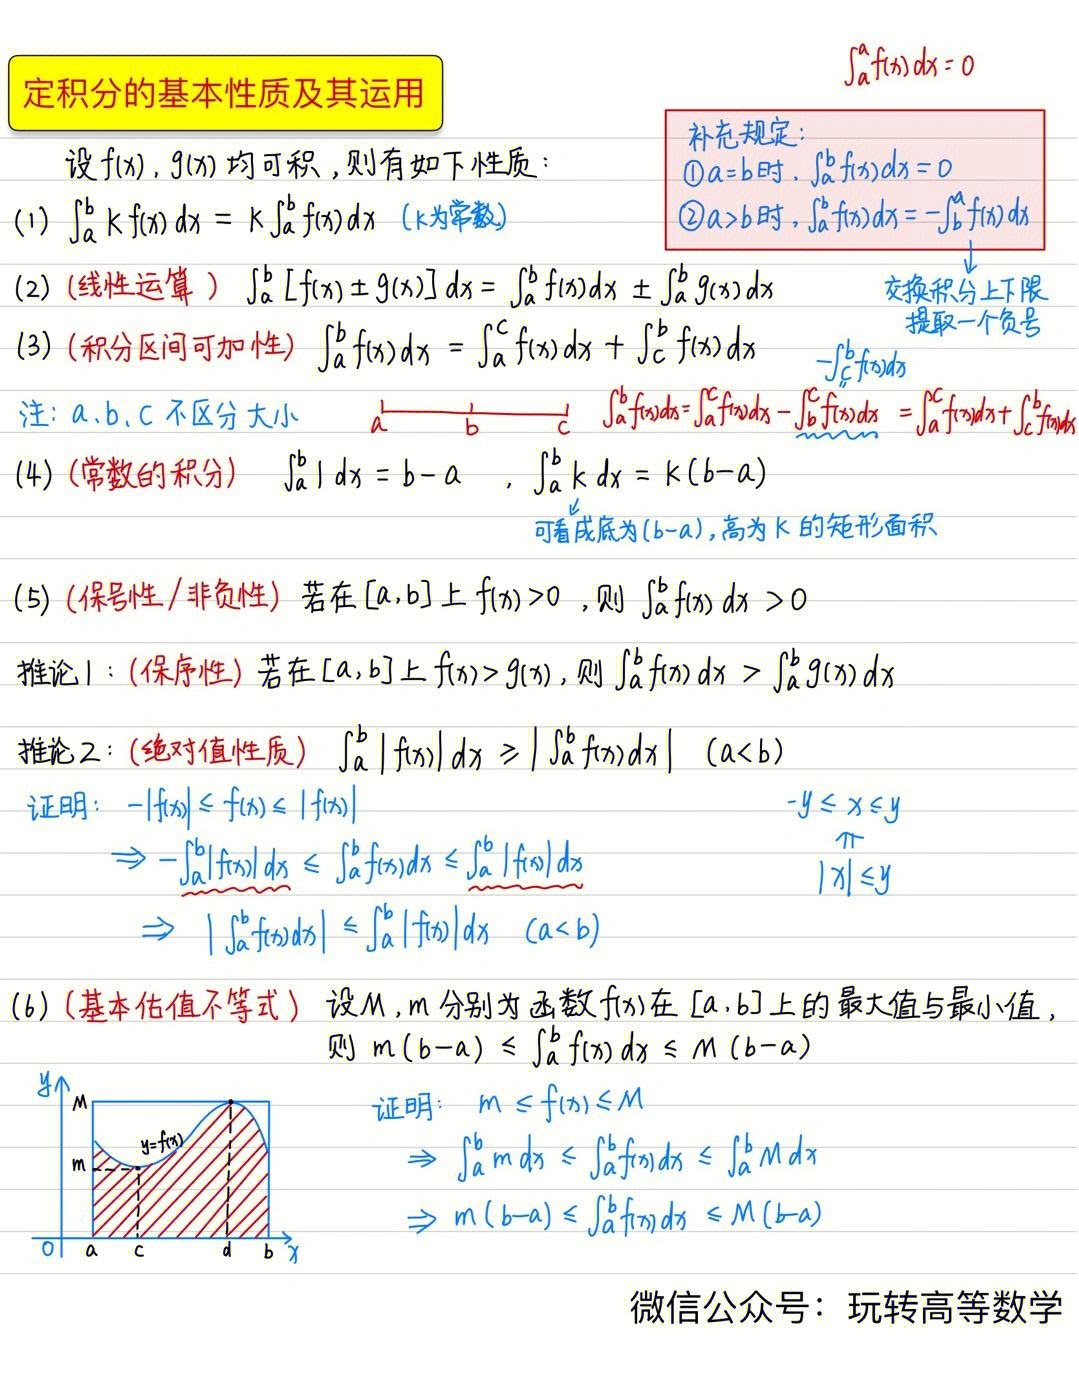 ∫ₐᵃ f(x)dx = 0
定积分的基本性质及其运用
补充规定:
①a=b时, ∫ₐᵇ f(x)dx = 0
②a>b时, ∫ₐᵇ f(x)dx = -∫_b^a f(x)dx
交换积分上下限
提取一个负号
设f(x), g(x)均可积, 则有如下性质:
(1) ∫ₐᵇ kf(x)dx = k∫ₐᵇ f(x)dx (k为常数)
(2) (线性运算) ∫ₐᵇ [f(x)±g(x)]dx = ∫ₐᵇ f(x)dx ± ∫ₐᵇ g(x)dx
(3) (积分区间可加性) ∫ₐᵇ f(x)dx = ∫_a^c f(x)dx + ∫_c^b f(x)dx
-∫_c^b f(x)dx
注: a、b、c 不区分大小 a b c ∫ₐᵇ f(x)dx = ∫_a^c f(x)dx - ∫_b^c f(x)dx = ∫_a^c f(x)dx + ∫_c^b f(x)dx
(4) (常数的积分) ∫ₐᵇ 1 dx = b-a , ∫ₐᵇ k dx = k(b-a)
可看成底为(b-a), 高为k的矩形面积
(5) (保号性/非负性) 若在[a,b]上 f(x)>0 , 则 ∫ₐᵇ f(x)dx > 0
推论1: (保序性) 若在[a,b]上 f(x)>g(x), 则 ∫ₐᵇ f(x)dx > ∫ₐᵇ g(x)dx
推论2: (绝对值性质) ∫ₐᵇ |f(x)|dx ≥ |∫ₐᵇ f(x)dx| (a<b)
证明: -|f(x)| ≤ f(x) ≤ |f(x)|
⇒ -∫ₐᵇ |f(x)|dx ≤ ∫ₐᵇ f(x)dx ≤ ∫ₐᵇ |f(x)|dx
⇒ |∫ₐᵇ f(x)dx| ≤ ∫ₐᵇ |f(x)|dx (a<b)
-y ≤ x ≤ y
⇑
|x| ≤ y
(6) (基本估值不等式) 设M, m分别为函数f(x)在[a,b]上的最大值与最小值,
则 m(b-a) ≤ ∫ₐᵇ f(x)dx ≤ M(b-a)
y
M
y=f(x)
m
0 a c d b x
证明: m ≤ f(x) ≤ M
⇒ ∫ₐᵇ m dx ≤ ∫ₐᵇ f(x)dx ≤ ∫ₐᵇ M dx
⇒ m(b-a) ≤ ∫ₐᵇ f(x)dx ≤ M(b-a)
微信公众号: 玩转高等数学